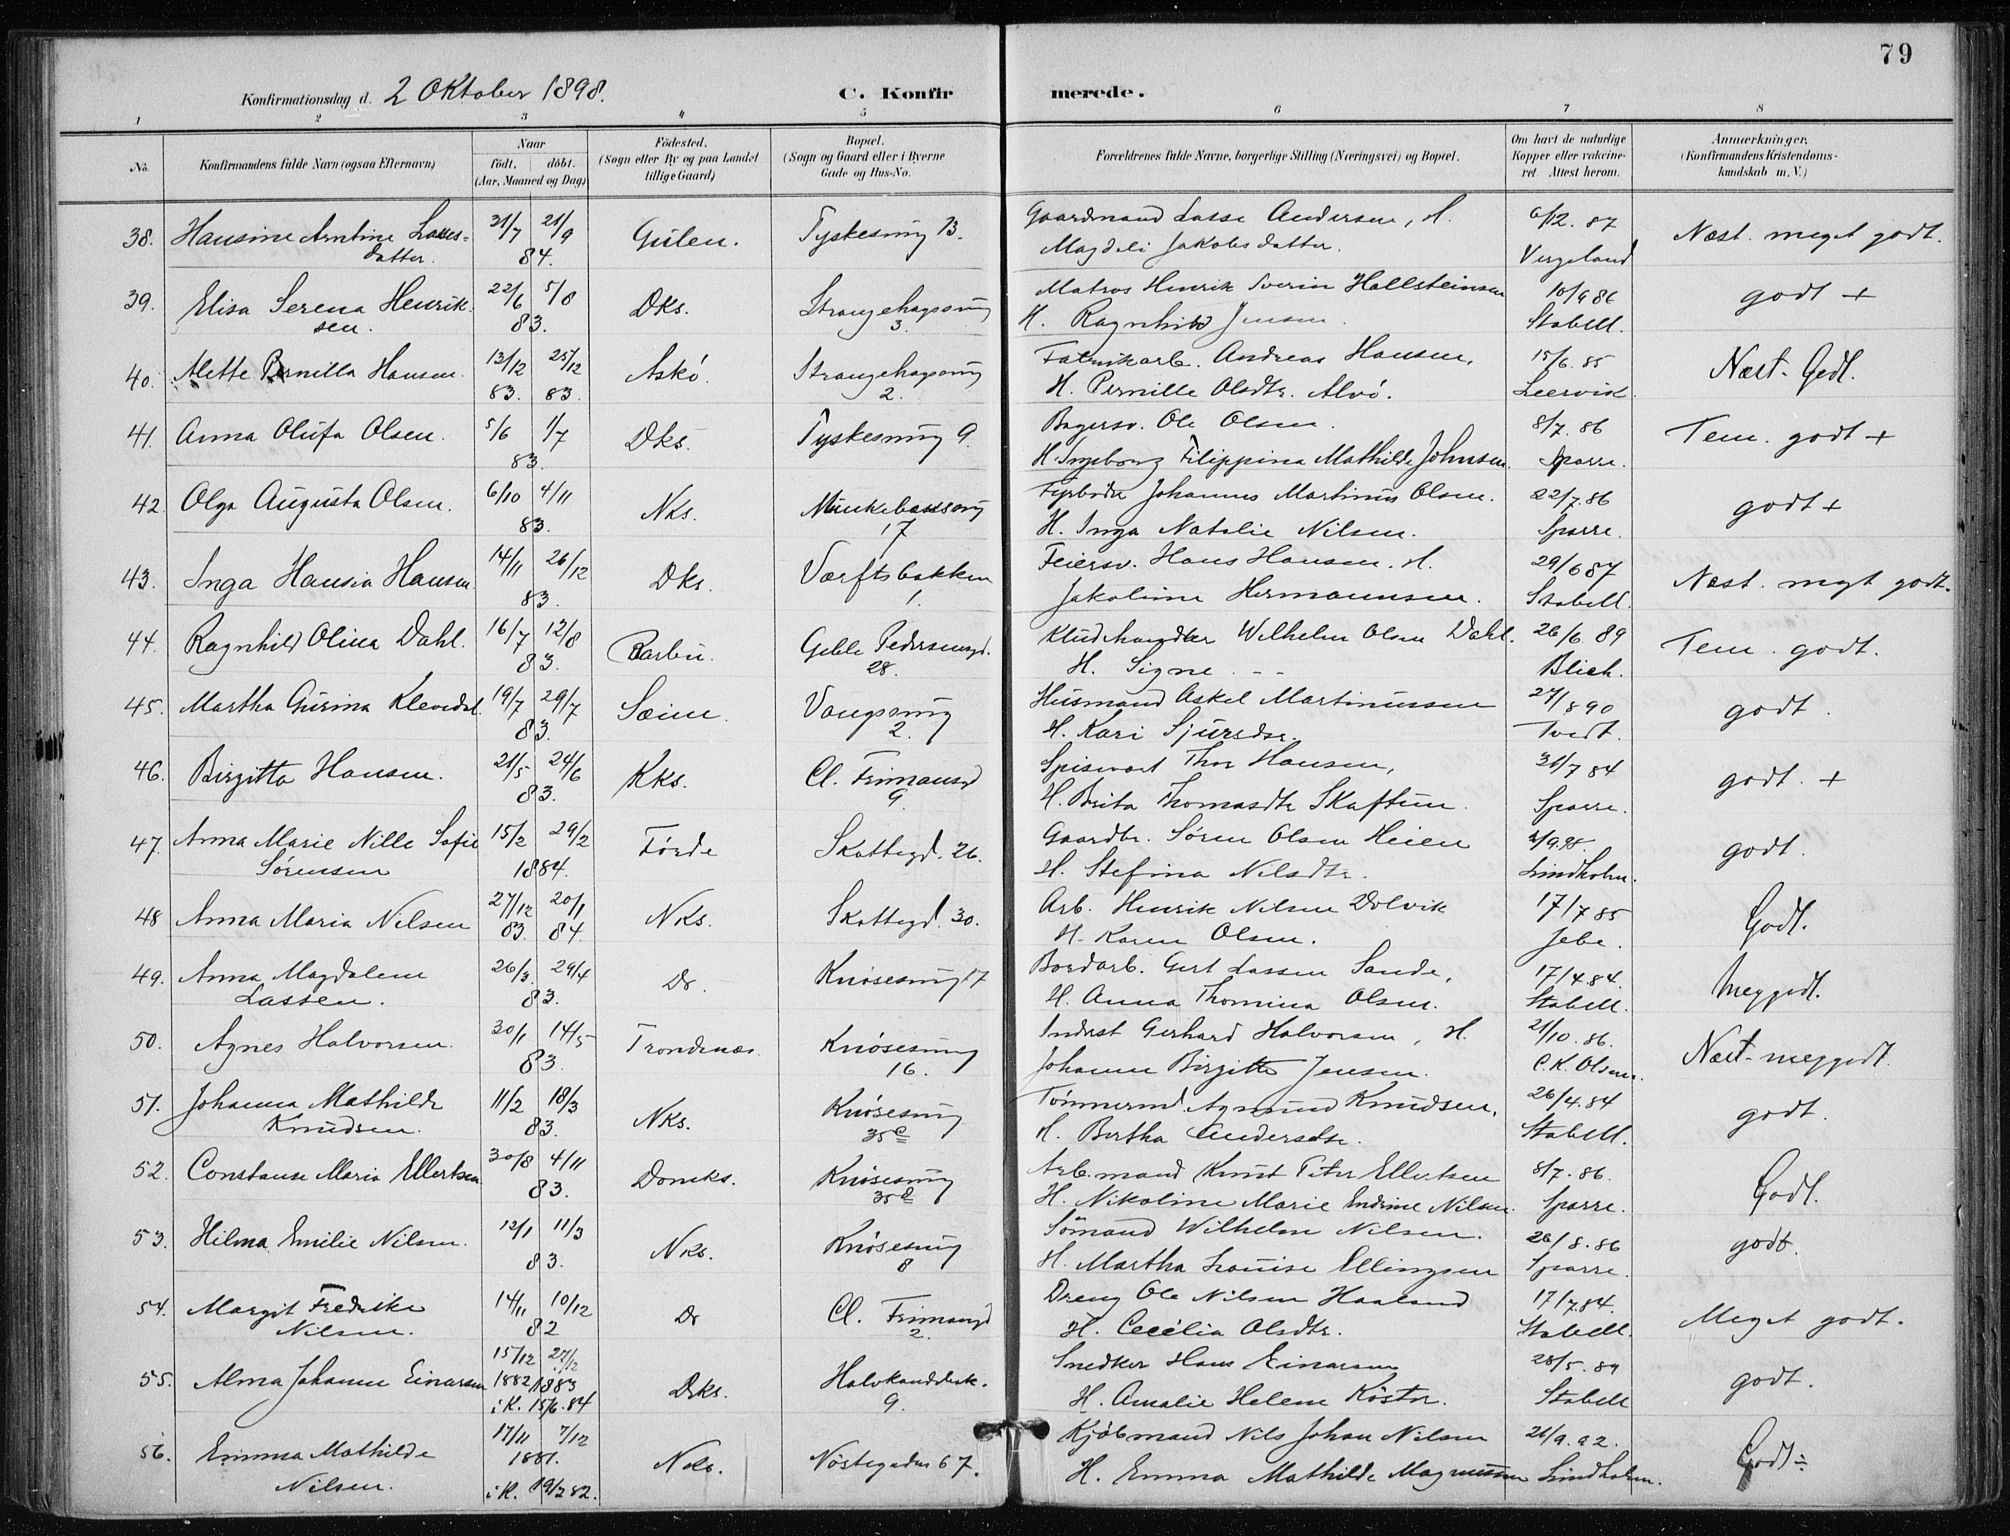 79
Konfirmationsdag d. 2 Oktober 1898.
C. Konfirmerede.
1 2 3 4 5 6 7 8
No. Konfirmandens fulde Navn (ogsaa Efternavn) Naar födt. döbt. (Aar, Maaned og Dag) Födested. (Sogn eller By og paa Landet tillige Gaard) Bopæl. (Sogn og Gaard eller i Byerne Gade og Hus-No. Forældrenes fulde Navne, borgerlige Stilling (Næringsvei) og Bopæl. Om havt de naturlige Kopper eller vakcineret. Attest herom. Anmærkninger. (Konfirmandens Kristendomskundskab m. V.)
38. Hansine Arntine Lassesdatter. 31/7 21/9 84. Gulen. Tyskesmug 13. Gaardmand Lasse Andersen, H. Magdeli Jakobsdatter. 6/12. 87 Vergeland Næst. meget godt.
39. Elisa Serena Henriksen. 22/6 5/8 83. Dks. Strangehagsmug 3. Matros Henrik Sverin Hallsteinsen H. Ragnhild Jensen. 10/9 86 Stabell. godt +
40. Alette Pernilla Hansen. 13/12 83. 25/12 83. Askö. Strangehagsmug 2. Fabrikarb. Andreas Hansen, H. Pernille Olsdtr. Alvö. 15/6. 85 Leervik. Næst. Godt.
41. Anna Olufa Olsen. 5/6 1/7 83. Dks. Tyskesmug 9. Bagersv. Ole Olsen. H. Ingeborg Filippina Mathilde Johnsen. 8/7. 86 Sparre. Tem. godt +
42. Olga Augusta Olsen. 6/10 4/11 83. Nks. Munkebæksmug 17 Fyrböder Johannes Martinus Olsen. H. Inga Natalie Nilsen. 22/7. 86 Sparre. godt +
43. Inga Hansia Hansen 14/11 26/12 83. Dks. Værftsbakken 1. Feiersv. Hans Hansen. H. Jakobine Hermannsen. 29/6 87 Stabell. Næst. megt godt.
44. Ragnhild Olina Dahl. 16/7 12/8 83. Barbu. Geble Pedersensgd. 28. Kludehandler Wilhelm Olsen Dahl. H. Signe - - 26/6. 89 Blich. Tem. godt.
45. Martha Gurina Klevdal. 19/7 29/7 83. Sæim. Vangsmug 2. Husmand Askel Martinussen H. Kari Sjursdtr. 27/8 90 Tvedt. godt.
46. Birgitta Hansen. 21/5 24/6 83. Kks. Cl. Frimansgd 9. Spisevært Thor Hansen, H. Brita Thomasdtr Skaftun. 31/7 84 Sparre. godt. +
47. Anna Marie Nille Sofie Sørensen 15/2 29/2 1884. Förde Skottegd. 26. Gaardbr. Sören Olsen Heien H. Stefina Nilsdtr. Lindholm. godt.
48 Anna Maria Nilsen 27/12 83. 20/1 84. Nks. Skottegd. 30. Arb. Henrik Nilsen Dolvik H. Karen Olsen. 17/7 85 Jebe. Godt.
49. Anna Magdalene Lassen. 26/3 29/4 83. Do Knösesmug 17 Bordarb. Gert Lassen Sande, H. Anna Thomina Olsen. 17/4. 84. Stabell. Meg godt.
50. Agnes Halvorsen. 30/1 14/5 83. Trondenæs. Knösesmug 16. Indrest Gerhard Halvorsen, H. Johanne Birgitte Jensen. 21/10. 86. C. K. Olsen. Næst. meg godt.
51. Johanna Mathilde Knudsen. 11/2 18/3 83. Nks. Knösesmug 35c Tömmermd Agmund Knudsen, H. Bertha Andersdtr. 26/4. 84 Stabell. godt.
52. Constanse Maria Ellertsen 30/8 4/11 83. Domks. Knösesmug 35d Arb.mand Knut Peter Ellertsen H. Nikoline Marie Endrine Nilsen. 8/7. 86. Sparre. Godt.
53. Hilma Emilie Nilsen. 12/1 11/3 83. Nks. Knösesmug 8 Sömand Wilhelm Nilsen. H. Martha Louise Ellingsen 26/8. 86 Sparre. godt.
54. Margit Fredrikke Nilsen. 14/11 10/12 82 Do Cl. Frimansgd 2. Dreng Ole Nilsen Haaland H. Cecélia Olsdtr. 17/7.84. Stabell. Meget godt.
55. Alma Johanne Einarsen 15/12 1882 27/12 1883 i K. 15/6. 84 Dks. Halvkandebak. 9. Snedker Hans Einarsen H. Amalie Helene Köster. 28/5. 89 Stabell godt.
56. Emma Mathilde Nilsen. 17/11 7/12 1881. i K. 19/2 82. Nks. Nöstegaden 67. Kjöbmand Nils Johan Nilsen H. Emma Mathilde Magnussen 26/9. 92. Lindholm. Godt ÷